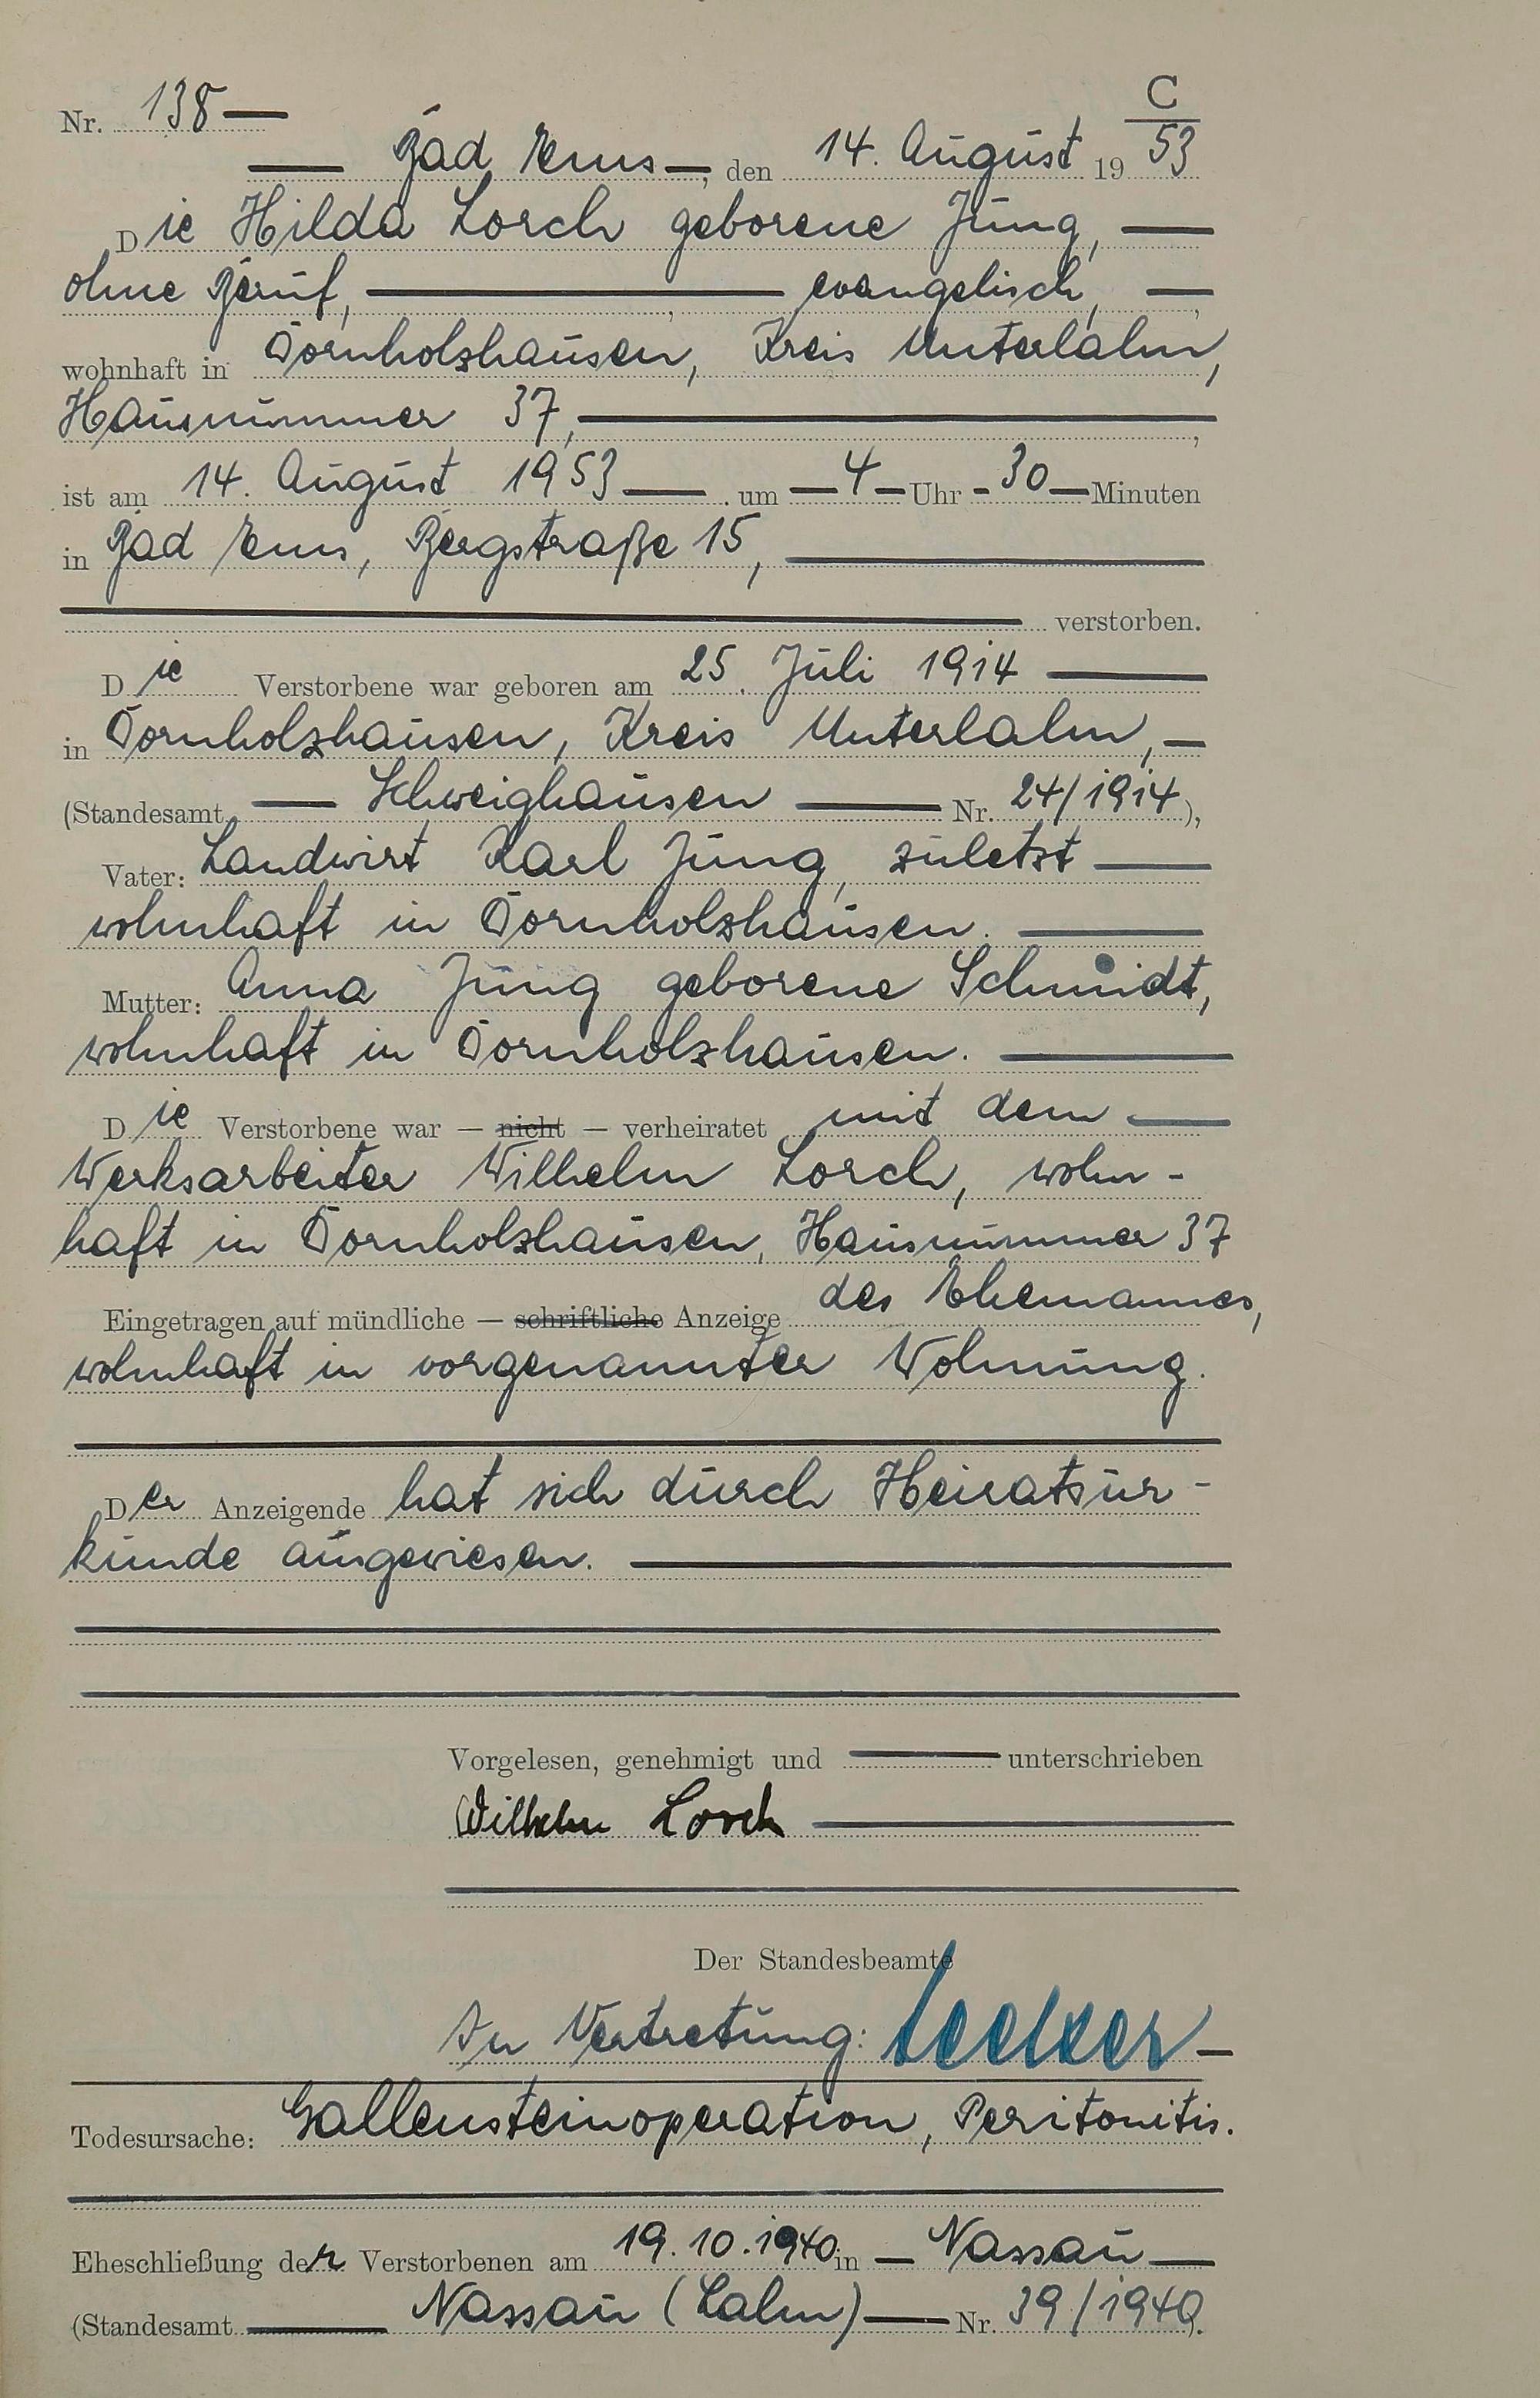 C
Nr. 138 —
— Bad Ems —, den 14. August 1953
Die Hilda Lorch geborene Jung, —
ohne Beruf, — evangelisch, —
wohnhaft in Dornholzhausen, Kreis Unterlahn,
Hausnummer 37, —
ist am 14. August 1953 — um — 4 — Uhr - 30 — Minuten
in Bad Ems, Bergstraße 15, —
— verstorben.
Die Verstorbene war geboren am 25. Juli 1914 —
in Dornholzhausen, Kreis Unterlahn, —
(Standesamt — Schweighausen — Nr. 24/1914),
Vater: Landwirt Karl Jung, zuletzt —
wohnhaft in Dornholzhausen. —
Mutter: Anna Jung geborene Schmidt,
wohnhaft in Dornholzhausen. —
Die Verstorbene war — nicht — verheiratet mit dem —
Werksarbeiter Wilhelm Lorch, wohn-
haft in Dornholzhausen, Hausnummer 37
Eingetragen auf mündliche — schriftliche Anzeige des Ehemannes,
wohnhaft in vorgenannter Wohnung.
Der Anzeigende hat sich durch Heiratsur-
kunde ausgewiesen. —
Vorgelesen, genehmigt und — unterschrieben
Wilhelm Lorch —
Der Standesbeamte
In Vertretung: —
Todesursache: Gallensteinoperation, Peritonitis.
Eheschließung der Verstorbenen am 19.10.1940 in — Nassau —
(Standesamt — Nassau (Lahn) — Nr. 39/1940).